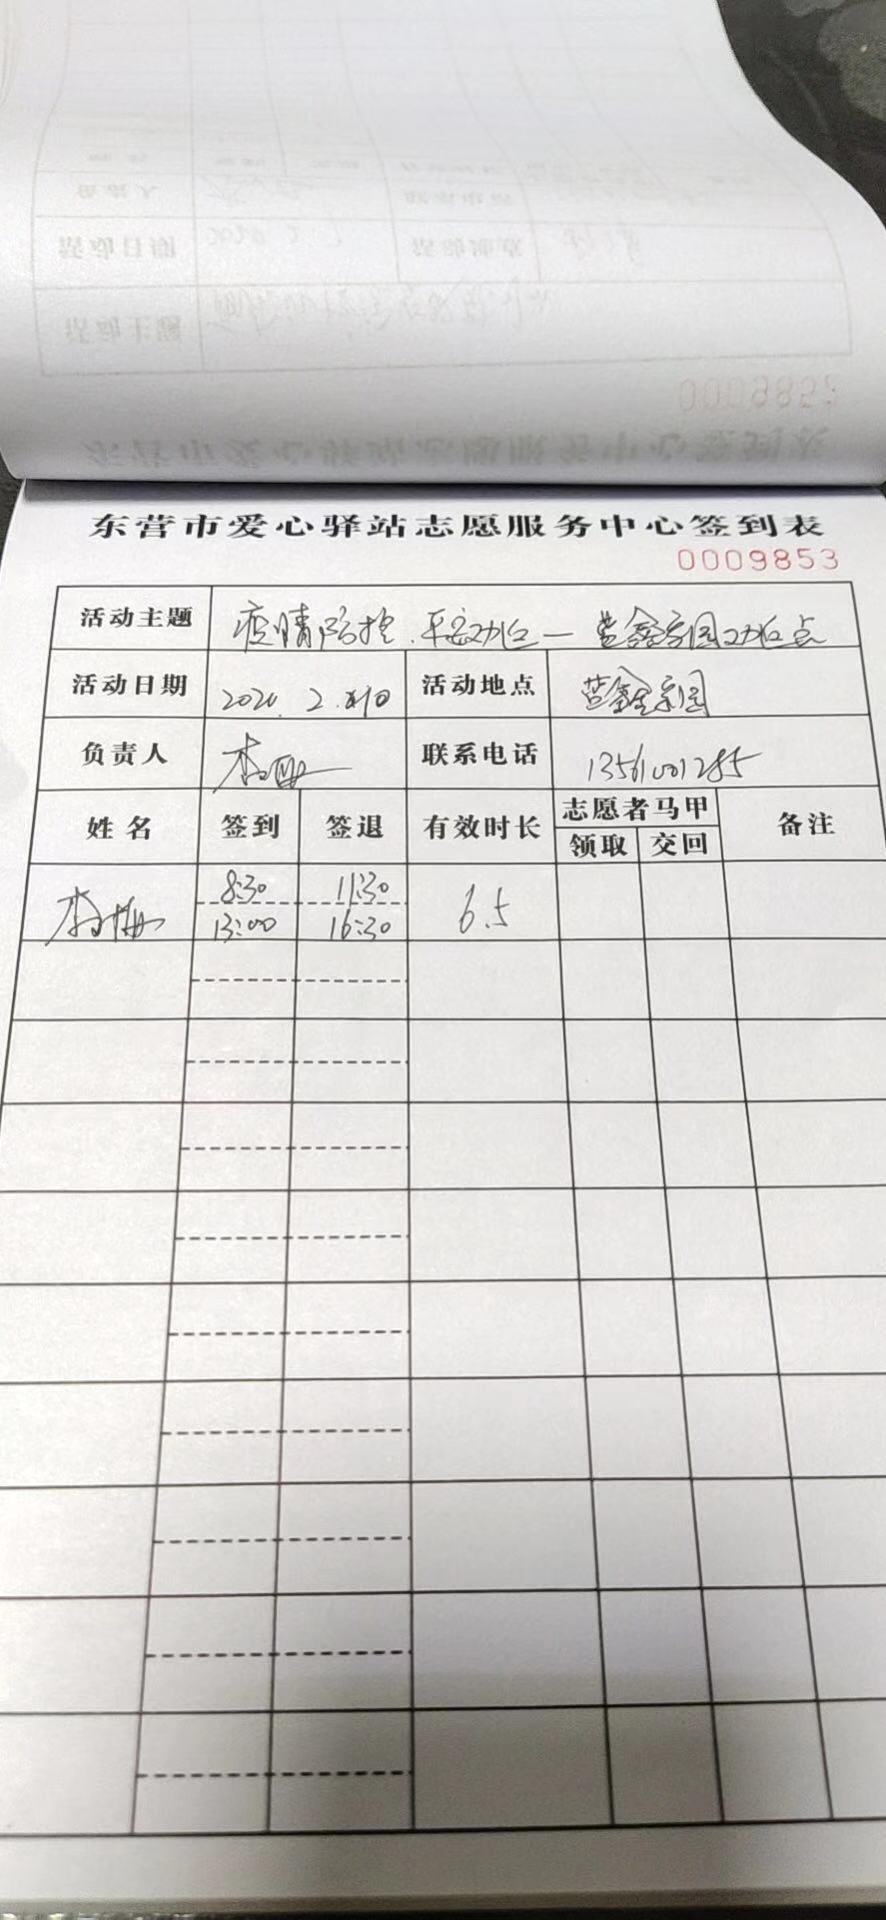 东营市爱心驿站志愿服务中心签到表
0009853
活动主题 疫情防控.平安功位一蓝鑫家园功位点
活动日期 2020.2.10 活动地点 蓝鑫家园
负责人 李梅 联系电话 13561001285
姓名 签到 签退 有效时长 志愿者马甲 备注
领取 交回
李梅 8:30 11:30 6.5
13:00 16:30